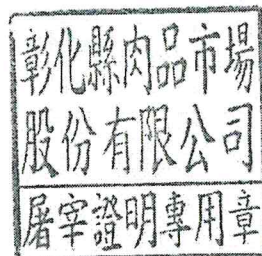 彰化縣肉品市場
股份有限公司
屠宰證明專用章